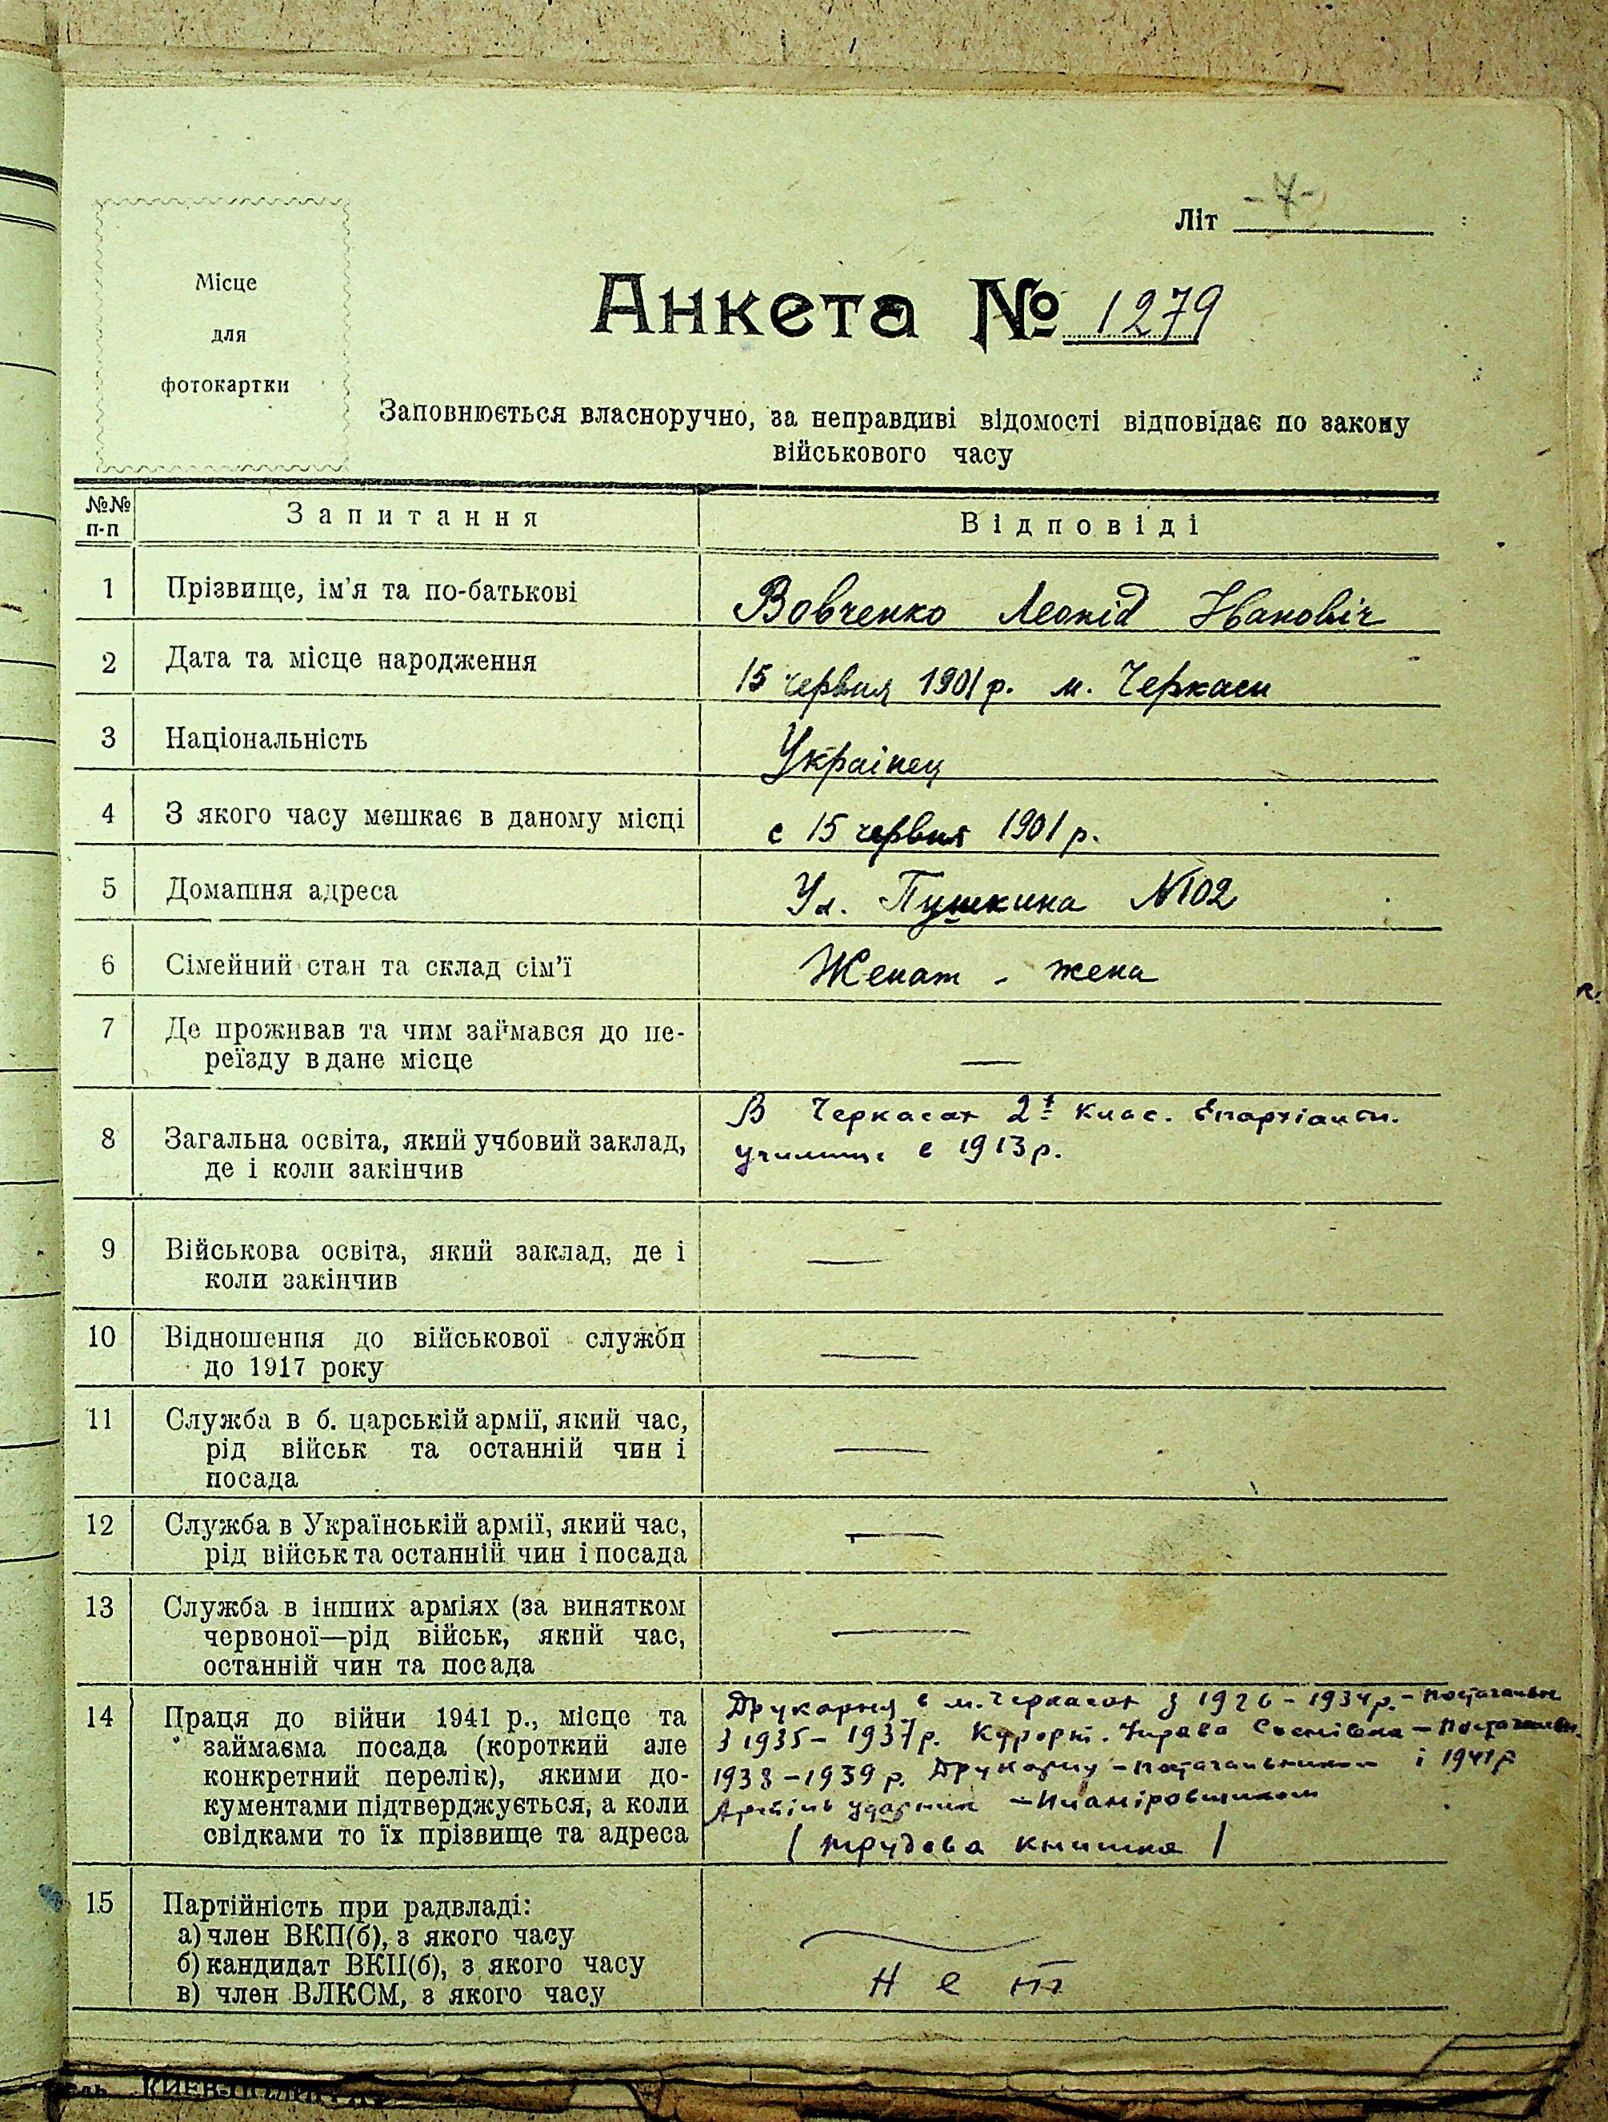 Літ -7-
Місце
для
фотокартки
Анкета № 1279
Заповнюється власноручно, за неправдиві відомості відповідає по закону
військового часу
№№
п-п
Запитання
Відповіді
1 Прізвище, ім'я та по-батькові Вовченко Леонід Іванович
2 Дата та місце народження 15 червня 1901 р. м. Черкаси
3 Національність Українец
4 З якого часу мешкає в даному місці с 15 червня 1901 р.
5 Домашня адреса Ул. Пушкина №102
6 Сімейний стан та склад сім'ї Женат - жена
7 Де проживав та чим займався до пе-
реїзду в дане місце —
В Черкасах 2х клас. Епархіальн.
8 Загальна освіта, який учбовий заклад,
училище в 1913 р.
де і коли закінчив
9 Військова освіта, який заклад, де і
коли закінчив —
10 Відношення до військової служби
до 1917 року —
11 Служба в б. царській армії, який час,
рід військ та останній чин і —
посада
12 Служба в Українській армії, який час, —
рід військ та останній чин і посада
13 Служба в інших арміях (за винятком
червоної—рід військ, який час, —
останній чин та посада
14 Праця до війни 1941 р., місце та
займаєма посада (короткий але
конкретний перелік), якими до-
кументами підтверджується, а коли
свідками то їх прізвище та адреса
Друкарня в м. Черкасах з 1926 - 1934 р. -
з 1935 - 1937 р. Курорт. Управа Соснівка -
1938 - 1939 р. Друкарну - постачальником і 1941 р
Артіль ударник -
(трудова книшка)
15 Партійність при радвладі:
а) член ВКП(б), з якого часу
б) кандидат ВКП(б), з якого часу
в) член ВЛКСМ, з якого часу
нет